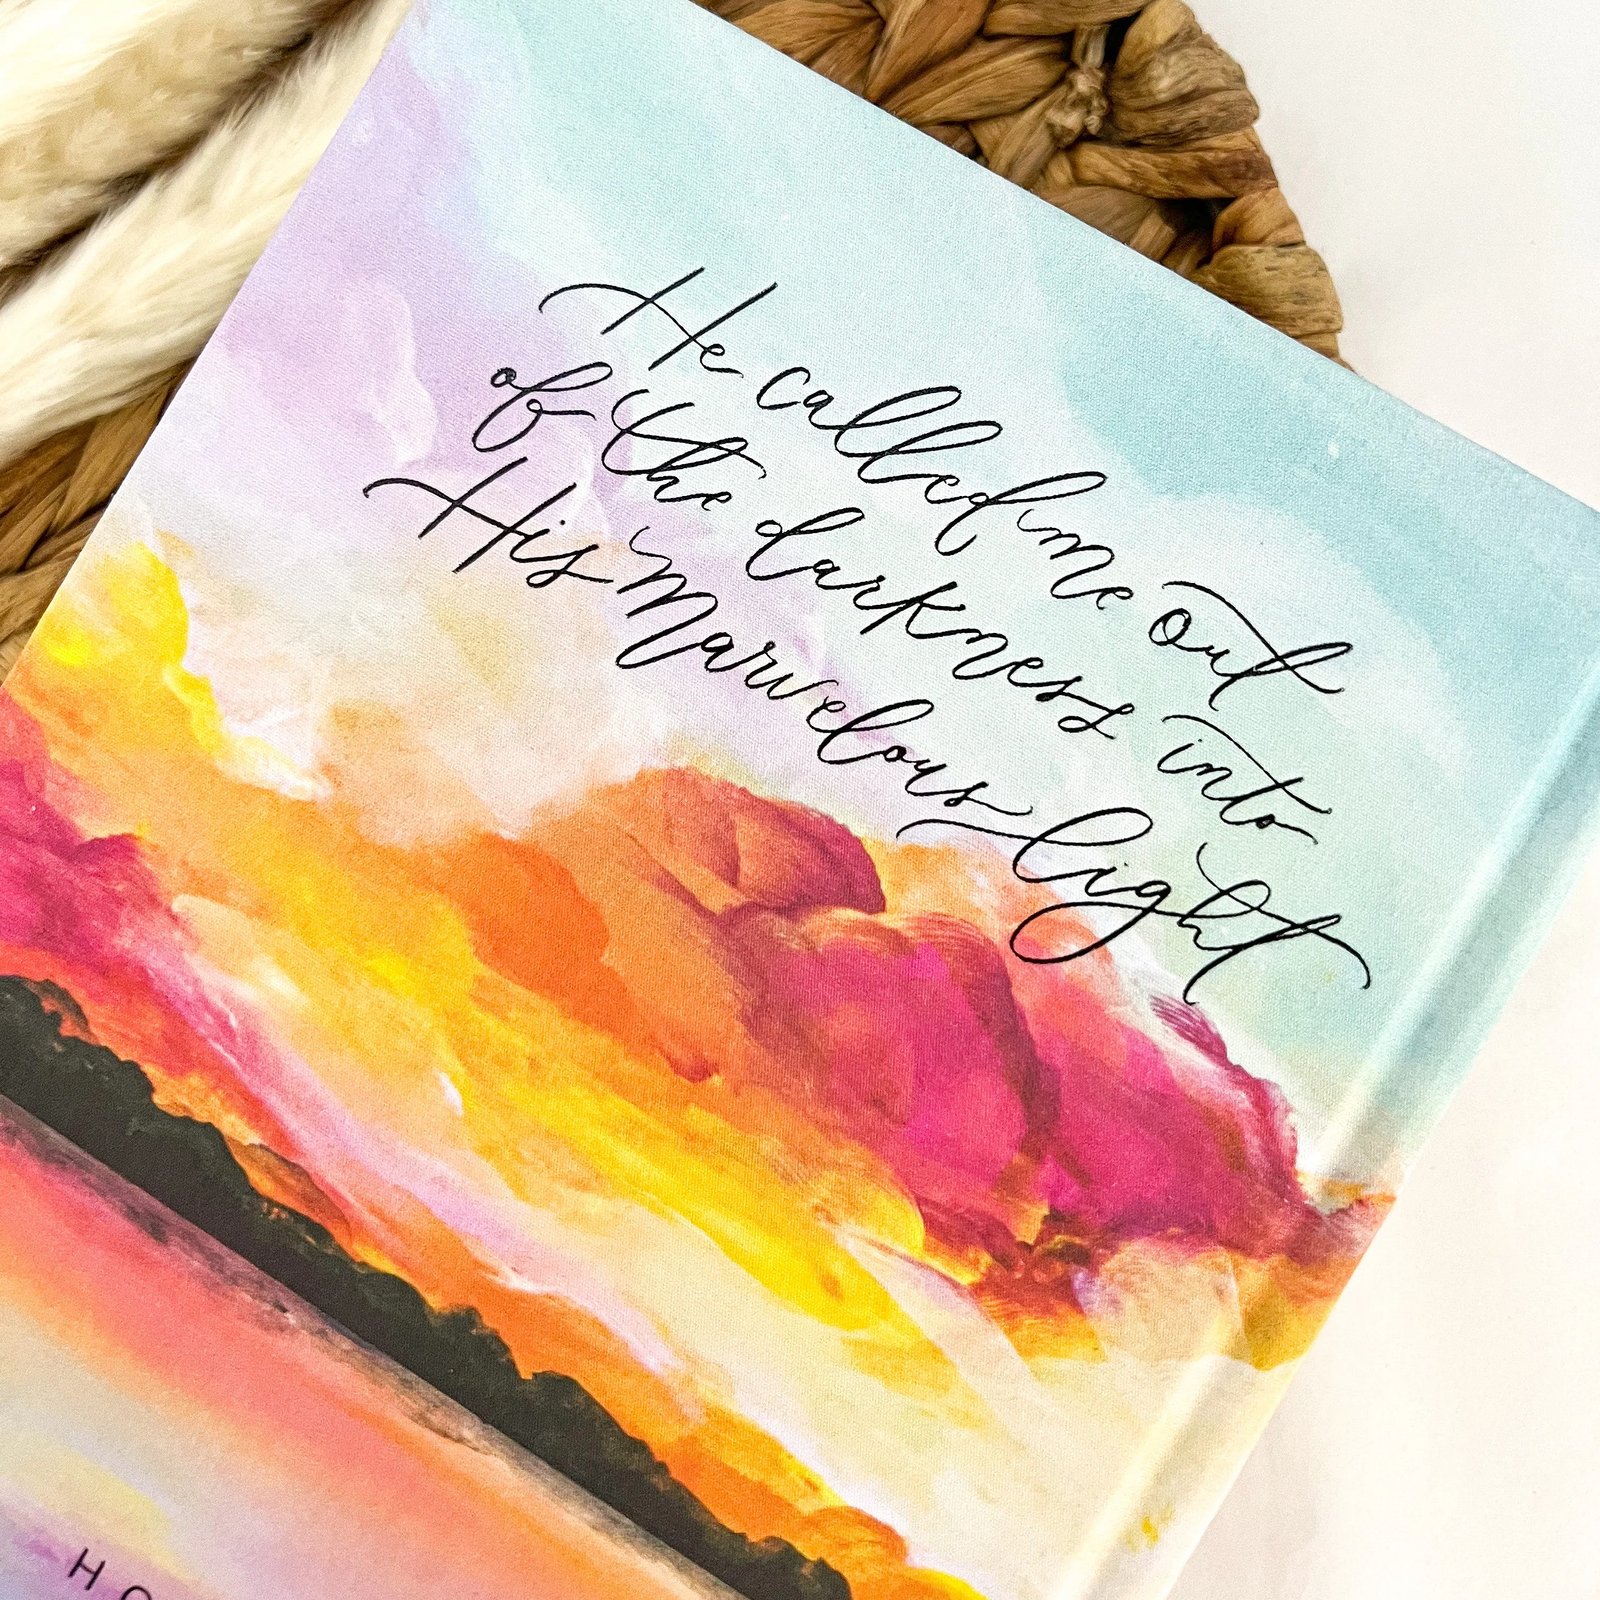 He called me out
of the darkness into
His Marvelous light